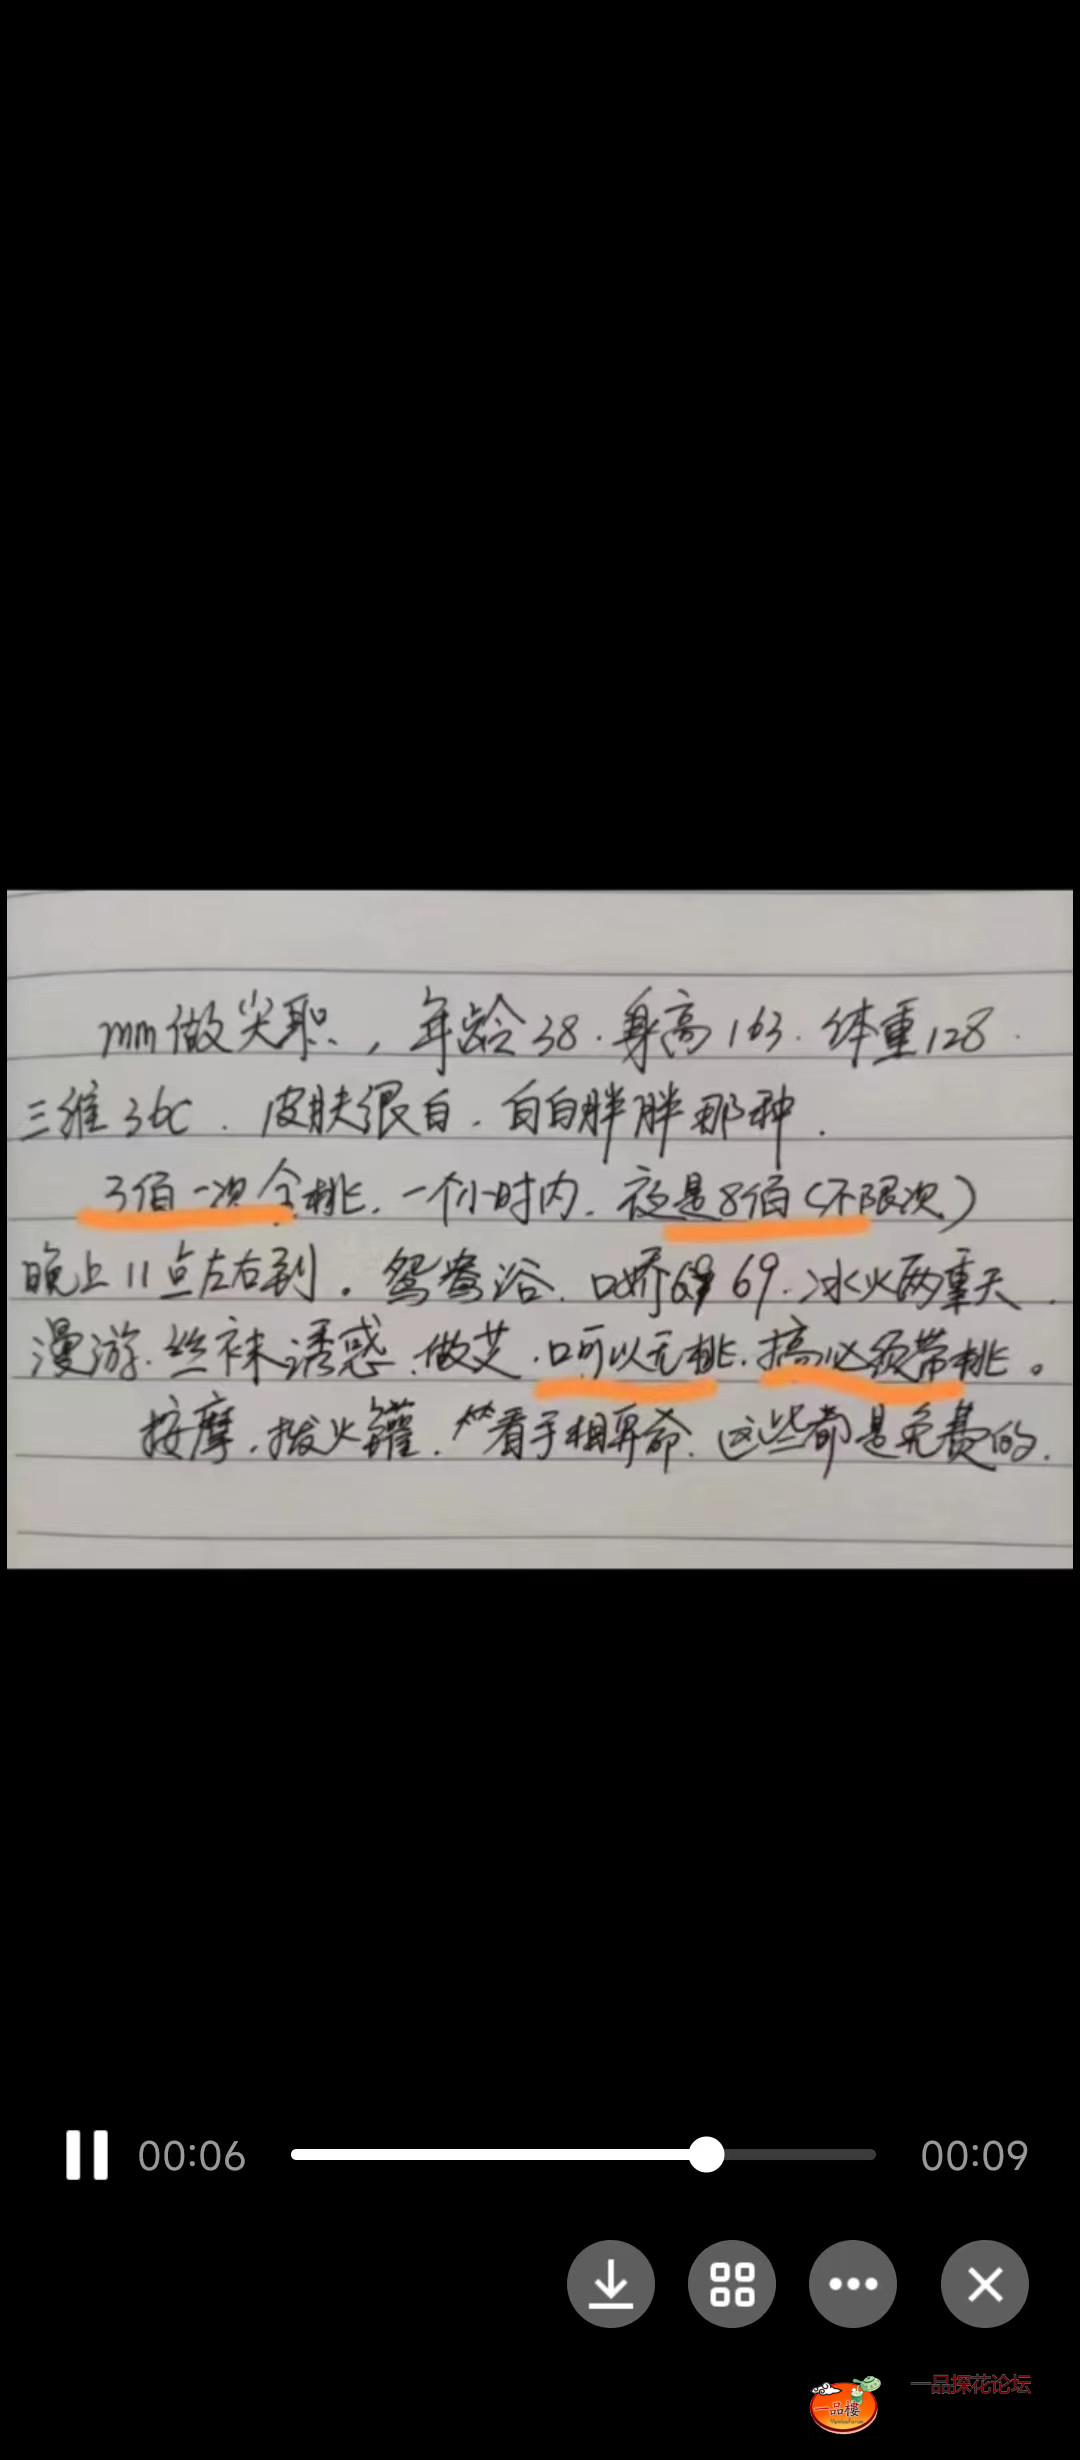 mm做尖职，年龄38.身高163.体重128.
三维36C.皮肤很白.白白胖胖那种.
3佰一次全桃.一个小时内.夜是8佰(不限次)
晚上11点左右到。鸳鸯浴.口娇69 69.冰火两重天.
漫游.丝袜诱惑.做艾.口可以无桃.搞必须带桃。
按摩.拔火罐.看手相算命.这些都是免费的.
00:06
00:09
一品楼
一品探花论坛